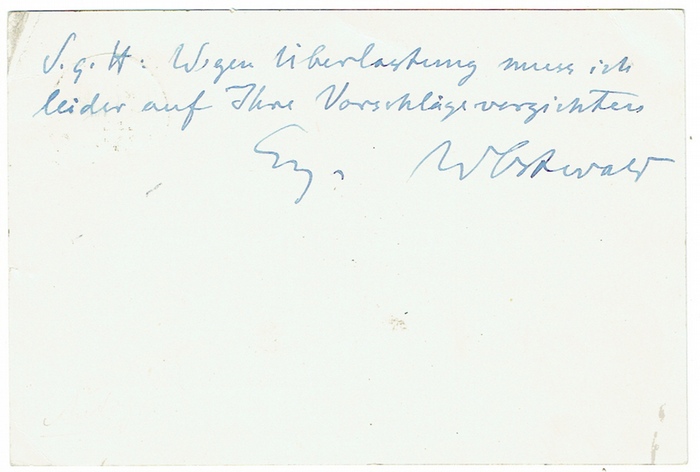 S. g. H: Wegen Überlastung muss ich
leider auf Ihre Vorschläge verzichten
Erg. WOstwald